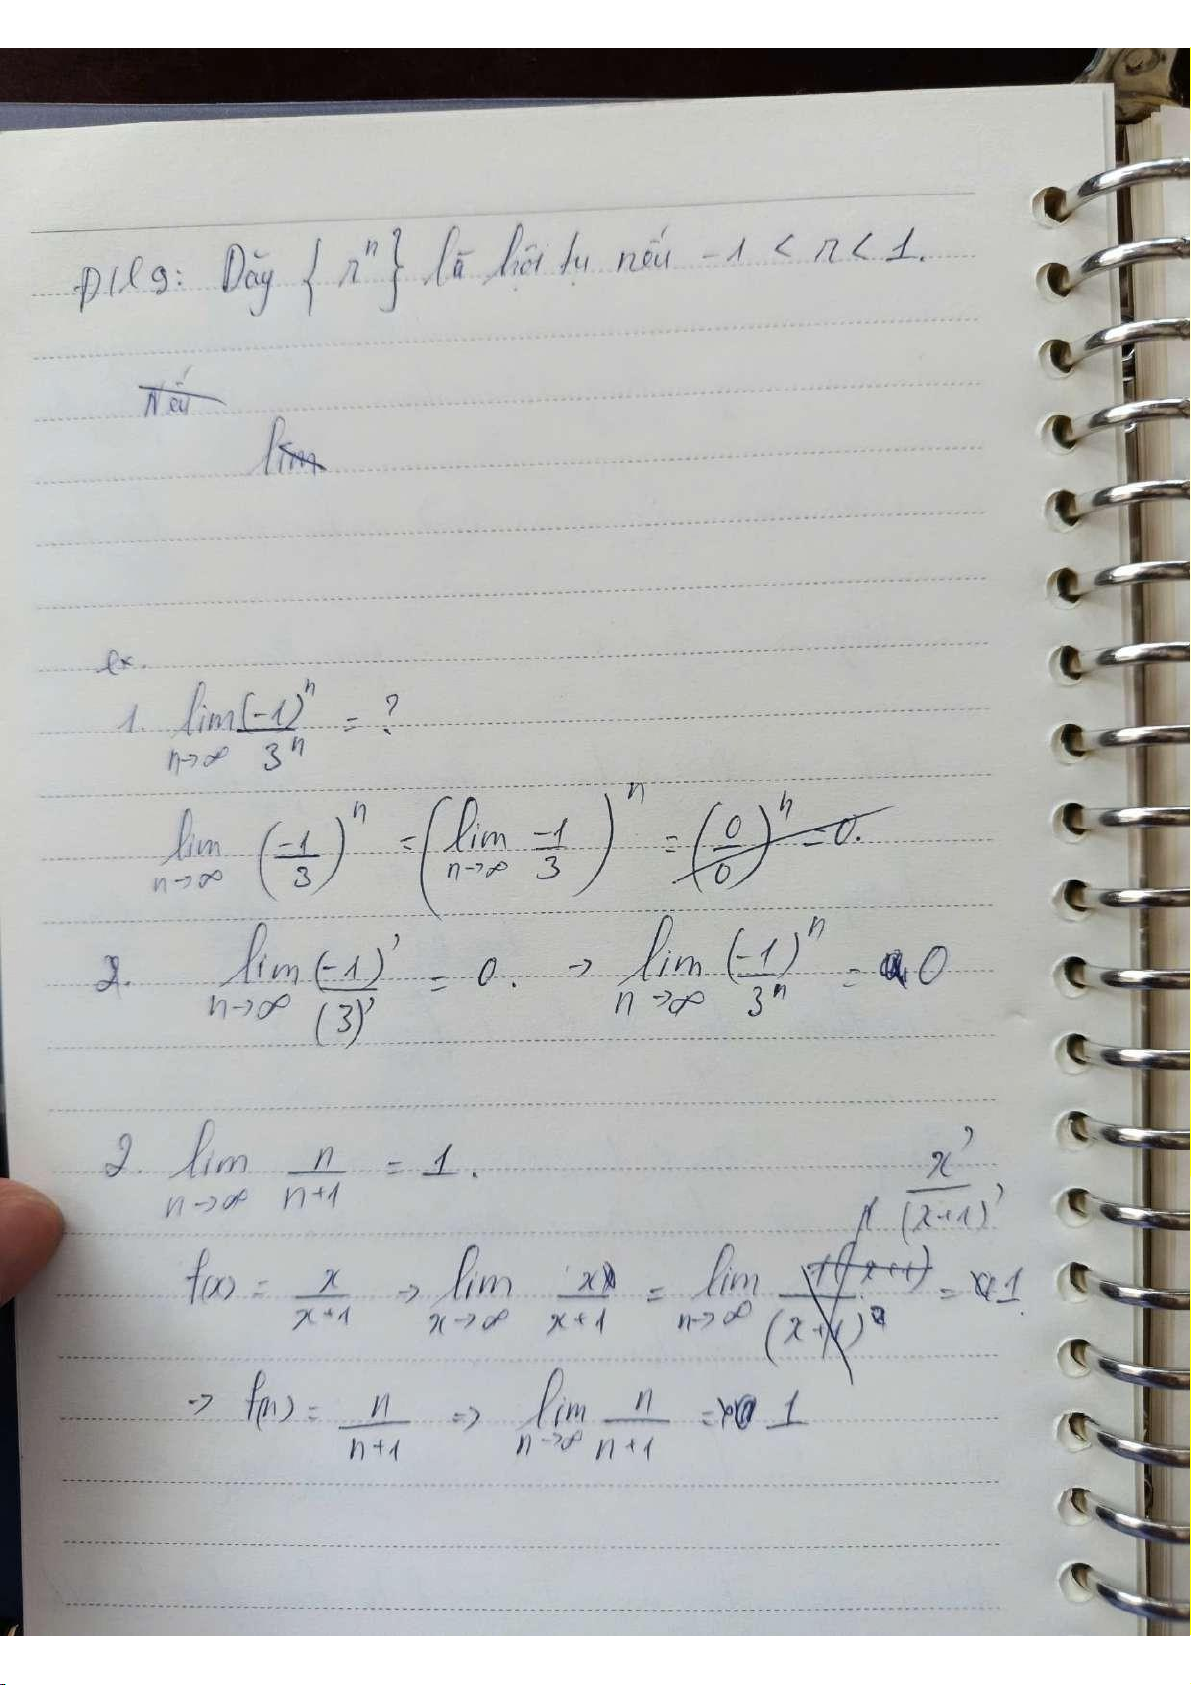 ĐLl 9: Dãy { r^n } là hội tụ nếu -1 < r < 1.
Nếu
lim
ex.
1. lim n→∞ (-1)^n / 3^n = ?
lim n→∞ (-1/3)^n = (lim n→∞ -1/3)^n = (0/0)^n = 0.
2. lim n→∞ (-1)' / (3)' = 0. → lim n→∞ (-1)^n / 3^n = 0
2. lim n→∞ n / n+1 = 1.
x' / (x+1)'
f(x) = x / x+1 → lim x→∞ x / x+1 = lim n→∞ 1(x+1) / (x+1)² = 1.
→ f(n) = n / n+1 => lim n→∞ n / n+1 = 1